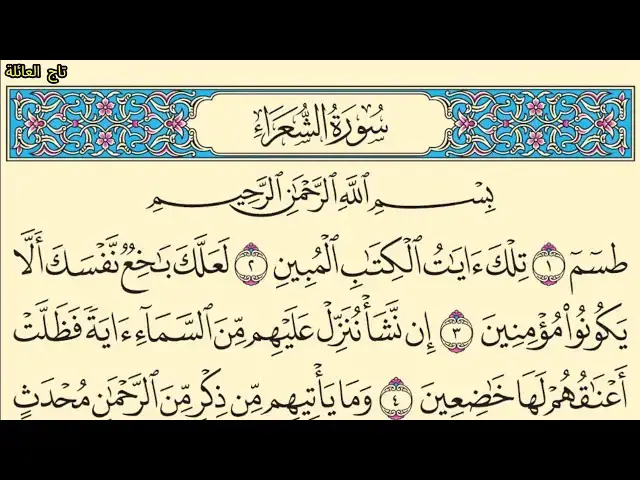 تاج العائلة
سُورَةُ الشُّعَرَاءِ
بِسْمِ اللَّهِ الرَّحْمَٰنِ الرَّحِيمِ
طسٓمٓ ١ تِلْكَ ءَايَٰتُ ٱلْكِتَٰبِ ٱلْمُبِينِ ٢ لَعَلَّكَ بَٰخِعٌ نَّفْسَكَ أَلَّا
يَكُونُوا۟ مُؤْمِنِينَ ٣ إِن نَّشَأْ نُنَزِّلْ عَلَيْهِم مِّنَ ٱلسَّمَآءِ ءَايَةً فَظَلَّتْ
أَعْنَٰقُهُمْ لَهَا خَٰضِعِينَ ٤ وَمَا يَأْتِيهِم مِّن ذِكْرٍ مِّنَ ٱلرَّحْمَٰنِ مُحْدَثٍ